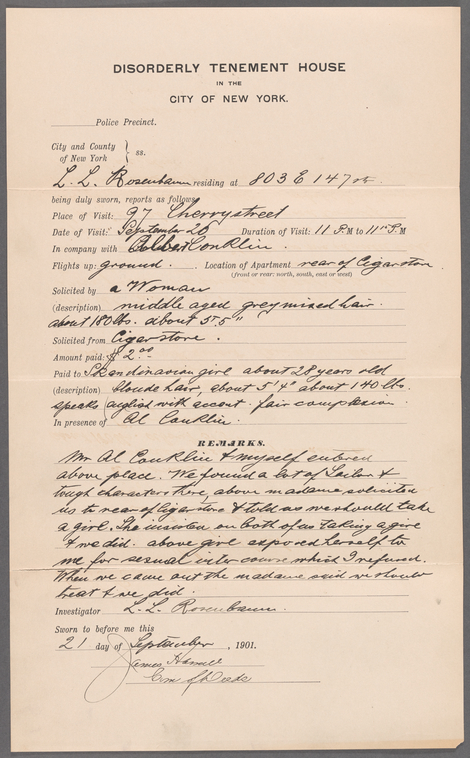 DISORDERLY TENEMENT HOUSE
IN THE
CITY OF NEW YORK.
Police Precinct.
City and County
of New York } ss.
L. L. Rosenbaum residing at 803 E 147 st
being duly sworn, reports as follows
Place of Visit: 97 Cherry street
Date of Visit: September 20 Duration of Visit: 11 P.M to 11 P.M
In company with Conklin.
Flights up: ground. Location of Apartment rear of Cigarstore.
(front or rear: north, south, east or west)
Solicited by a Woman
(description) middle aged grey mixed hair.
about 180 lbs. about 5' 5"
Solicited from Cigarstore.
Amount paid: $2.00
Paid to Skandinavian girl about 28 years old
(description) blonde hair, about 5'4" about 140 lbs.
speaks english with accent. fair complexion
In presence of Al Conklin.
REMARKS.
Mr Al Conklin & myself entered
above place. We found a lot of Sailor &
tough characters there, above madame solicited
us to rear of Cigarstore & told us we should take
a girl. She insisted on both of us taking a girl
& we did. above girl exposed herself to
me for sexual intercourse which I refused.
When we came out the madame said we should
treat & we did.
Investigator L. L. Rosenbaum.
Sworn to before me this
21 day of September, 1901.
James
Com of Deeds